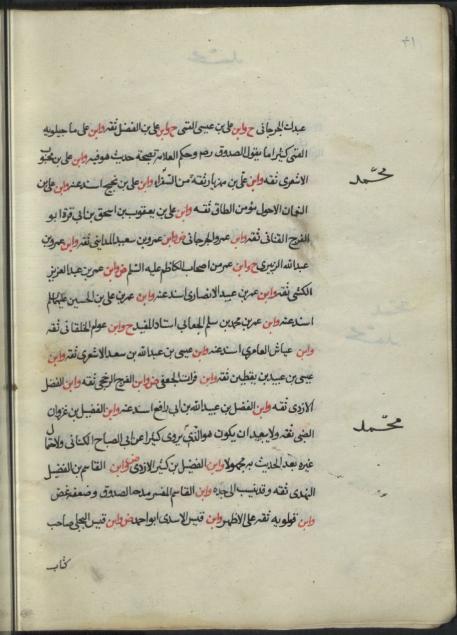 ٤١
عبدك الجرجانی ح وابن علی بن عیسی القمی ح وابن علی بن الفضل ثقه وابن علی ماجیلویه
القمی کثیرا ما یقول الصدوق رحم وحکم العلامه بصحة حدیث هو فیه وابن علی بن محبوب
الاشعری ثقه وابن علی بن مهزیار ثقه من السفراء وابن علی بن نجیح اسند عنه وابن علی بن
محمّد
النعمان الاحول مؤمن الطاق ثقه وابن علی بن یعقوب بن اسحق بن ابی قرة ابو
الفرج القنائی ثقه وابن عمرو الجرجانی ض وابن عمرو بن سعید المداینی ثقه وابن عمرو بن
عبدالله الزبیری ح وابن عمر من اصحاب الکاظم علیه السلم ض وابن عمر بن عبدالعزیز
الکشی ثقه وابن عمر بن عبید الانصاری اسند عنه وابن عمر بن علی بن الحسین علیهم
اسند عنه وابن عمر بن محمد بن سلم الجعابی استاد للمفید ح وابن عوام الخلقانی ثقه
وابن عیاش العامری اسند عنه وابن عیسی بن عبدالله بن سعد الاشعری ثقه وابن
عیسی بن عبید بن یقطین ثقه وابن فرات الجعفی ض وابن الفرج الرخجی ثقه وابن الفضل
الازدی ثقه وابن الفضل بن عبیدالله بن ابی رافع اسند عنه وابن الفضیل بن غزوان
محمّد
الضبی ثقه ولا یبعد ان یکون هو الذی یروی کثیرا عن ابی الصباح الکنانی
غیره یعد الحدیث به مجهولا وابن الفضیل بن کثیر الازدی ض وابن القاسم بن الفضیل
النهدی ثقه وقد ینسب الی جده وابن القاسم المفسر مدحه الصدوق وضعفه غض
وابن قولویه ثقه علی الاظهر وابن قیس الاسدی ابو احمد ض وابن قیس البجلی صاحب
کتاب